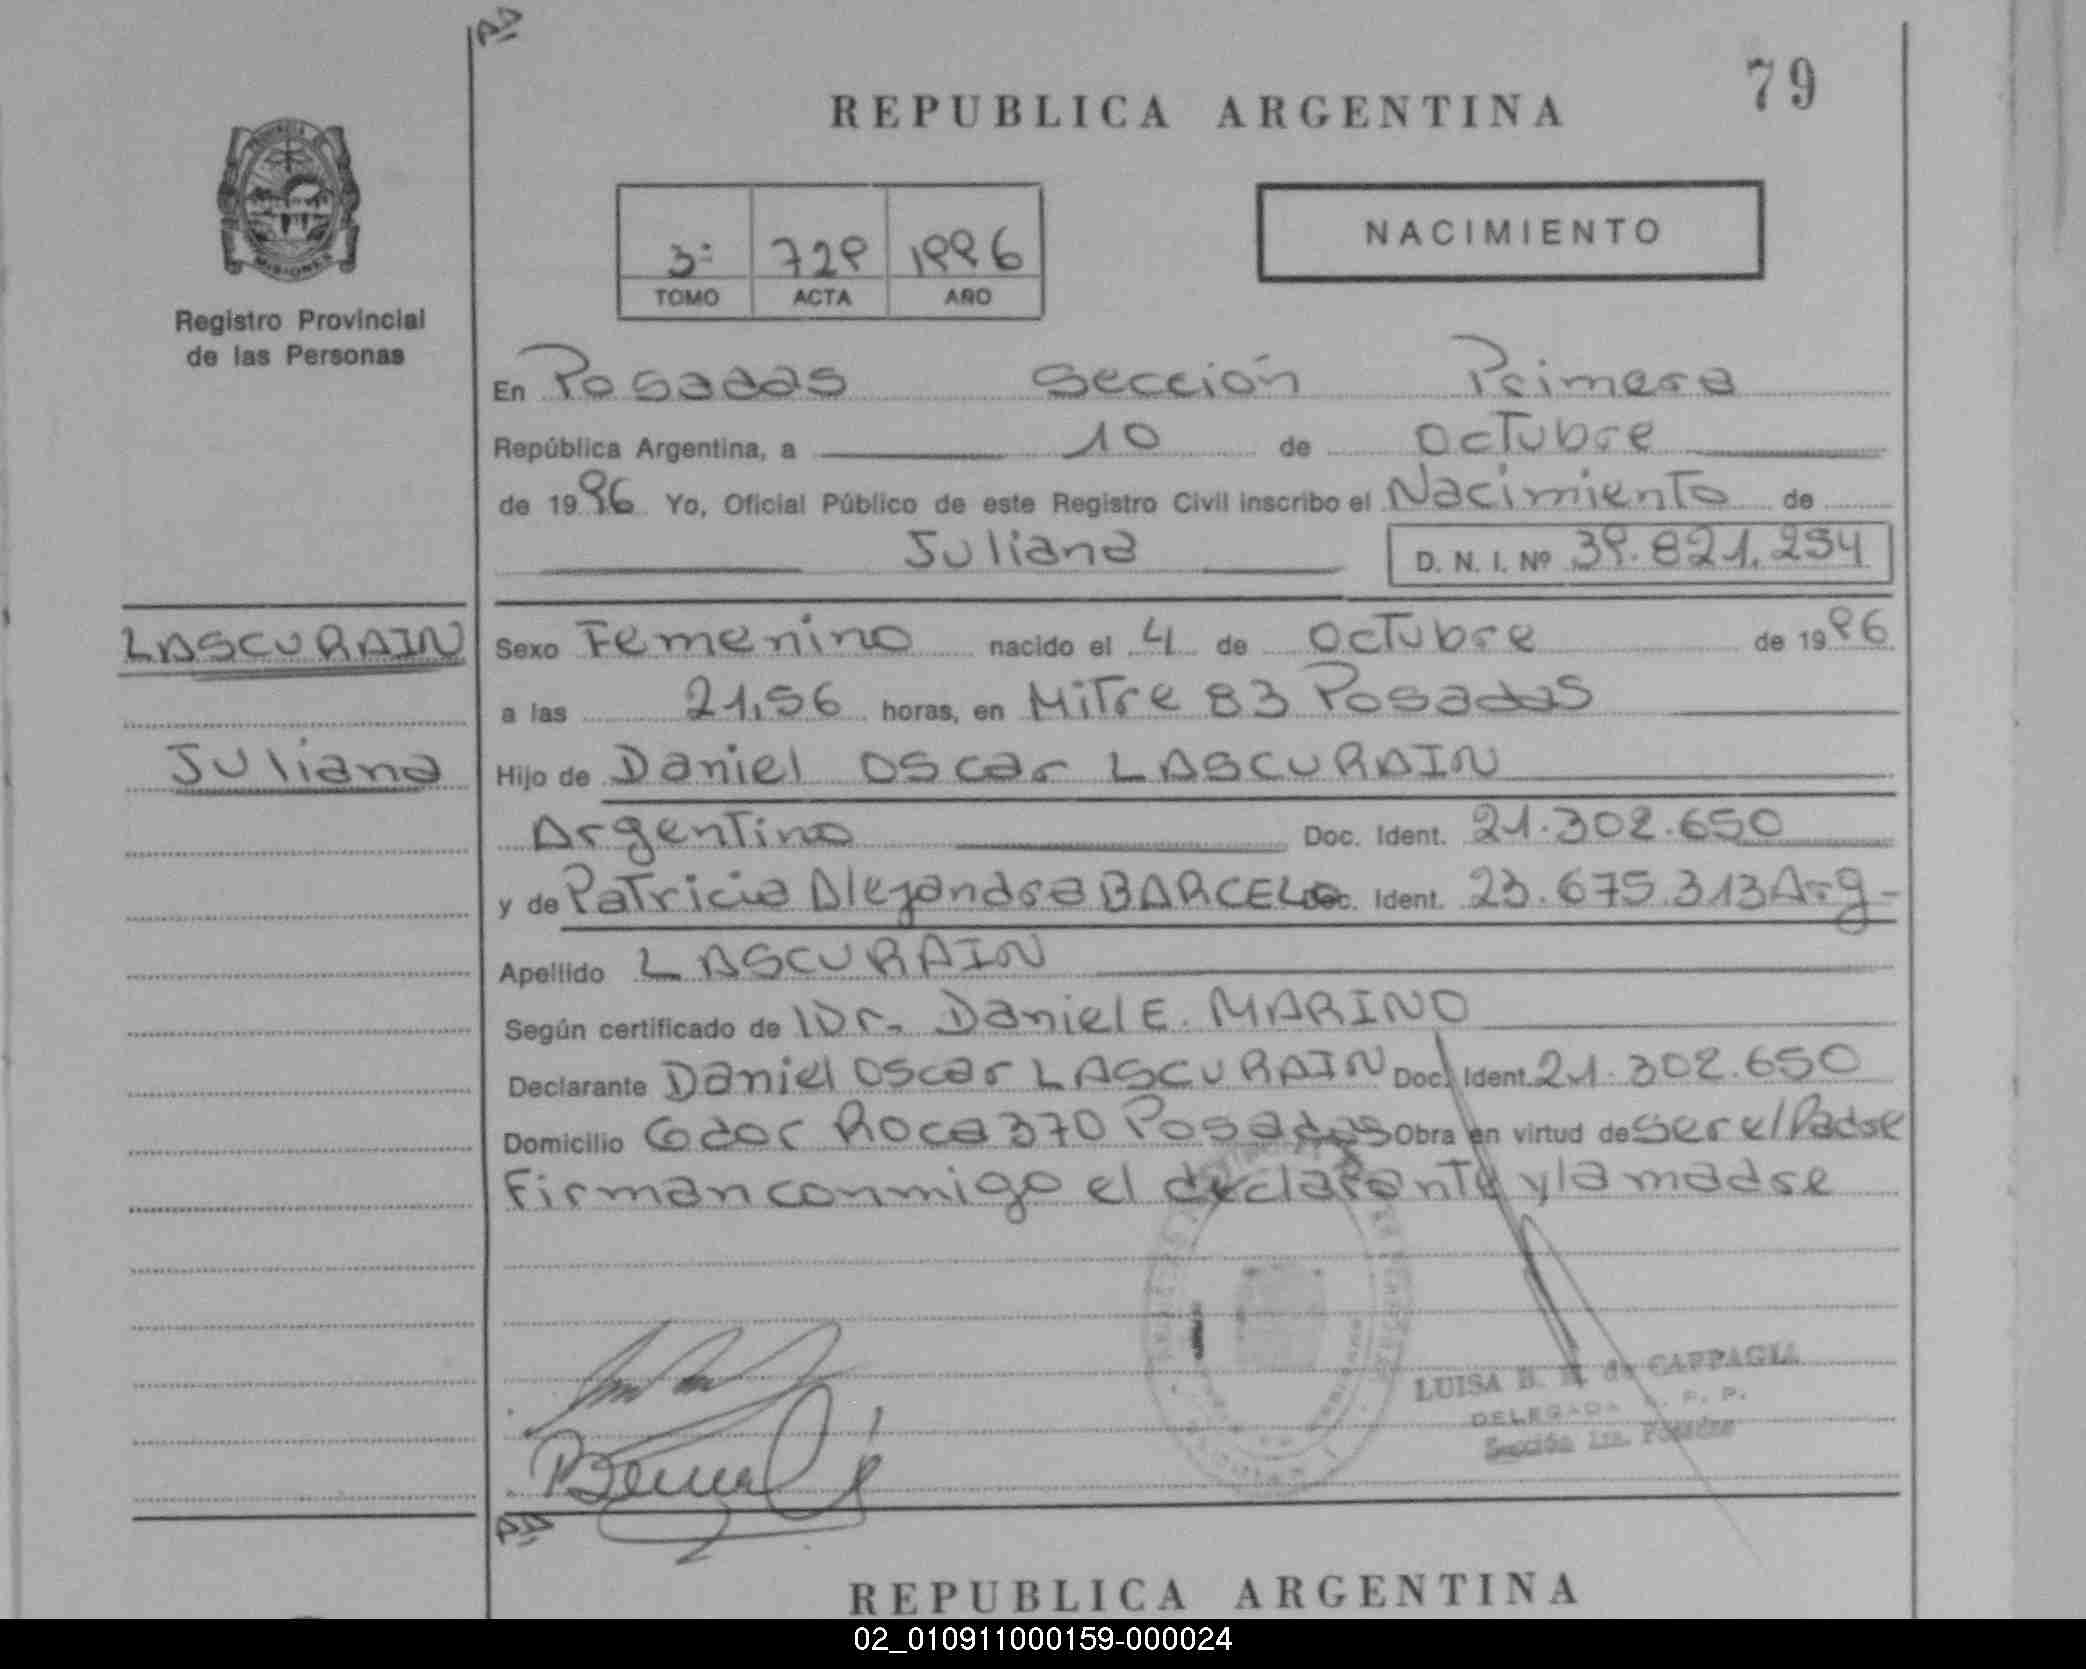 79
REPUBLICA ARGENTINA
NACIMIENTO
3º 729 1996
TOMO ACTA AÑO
MISIONES
Registro Provincial
de las Personas
En Posadas Sección Primera
República Argentina, a 10 de Octubre
de 1996 Yo, Oficial Público de este Registro Civil inscribo el Nacimiento de
Juliana D. N. I. Nº 39.821.254
LASCURAIN
Juliana
Sexo Femenino nacido el 4 de Octubre de 1996
a las 21,56 horas, en Mitre 83 Posadas
Hijo de Daniel Oscar LASCURAIN
Argentino Doc. Ident. 21.302.650
y de Patricia Alejandra BARCELO Doc. Ident. 23.675.313 Arg-
Apellido LASCURAIN
Según certificado de Dr. Daniel E. MARINO
Declarante Daniel Oscar LASCURAIN Doc. Ident. 21.302.650
Domicilio Gdor Roca 370 Posadas Obra en virtud de ser el Padre
Firman conmigo el declarante y la madre
LUISA B. de
DELEGADA R. P. P.
Sección 1ra. Posadas
REPUBLICA ARGENTINA
02_010911000159-000024